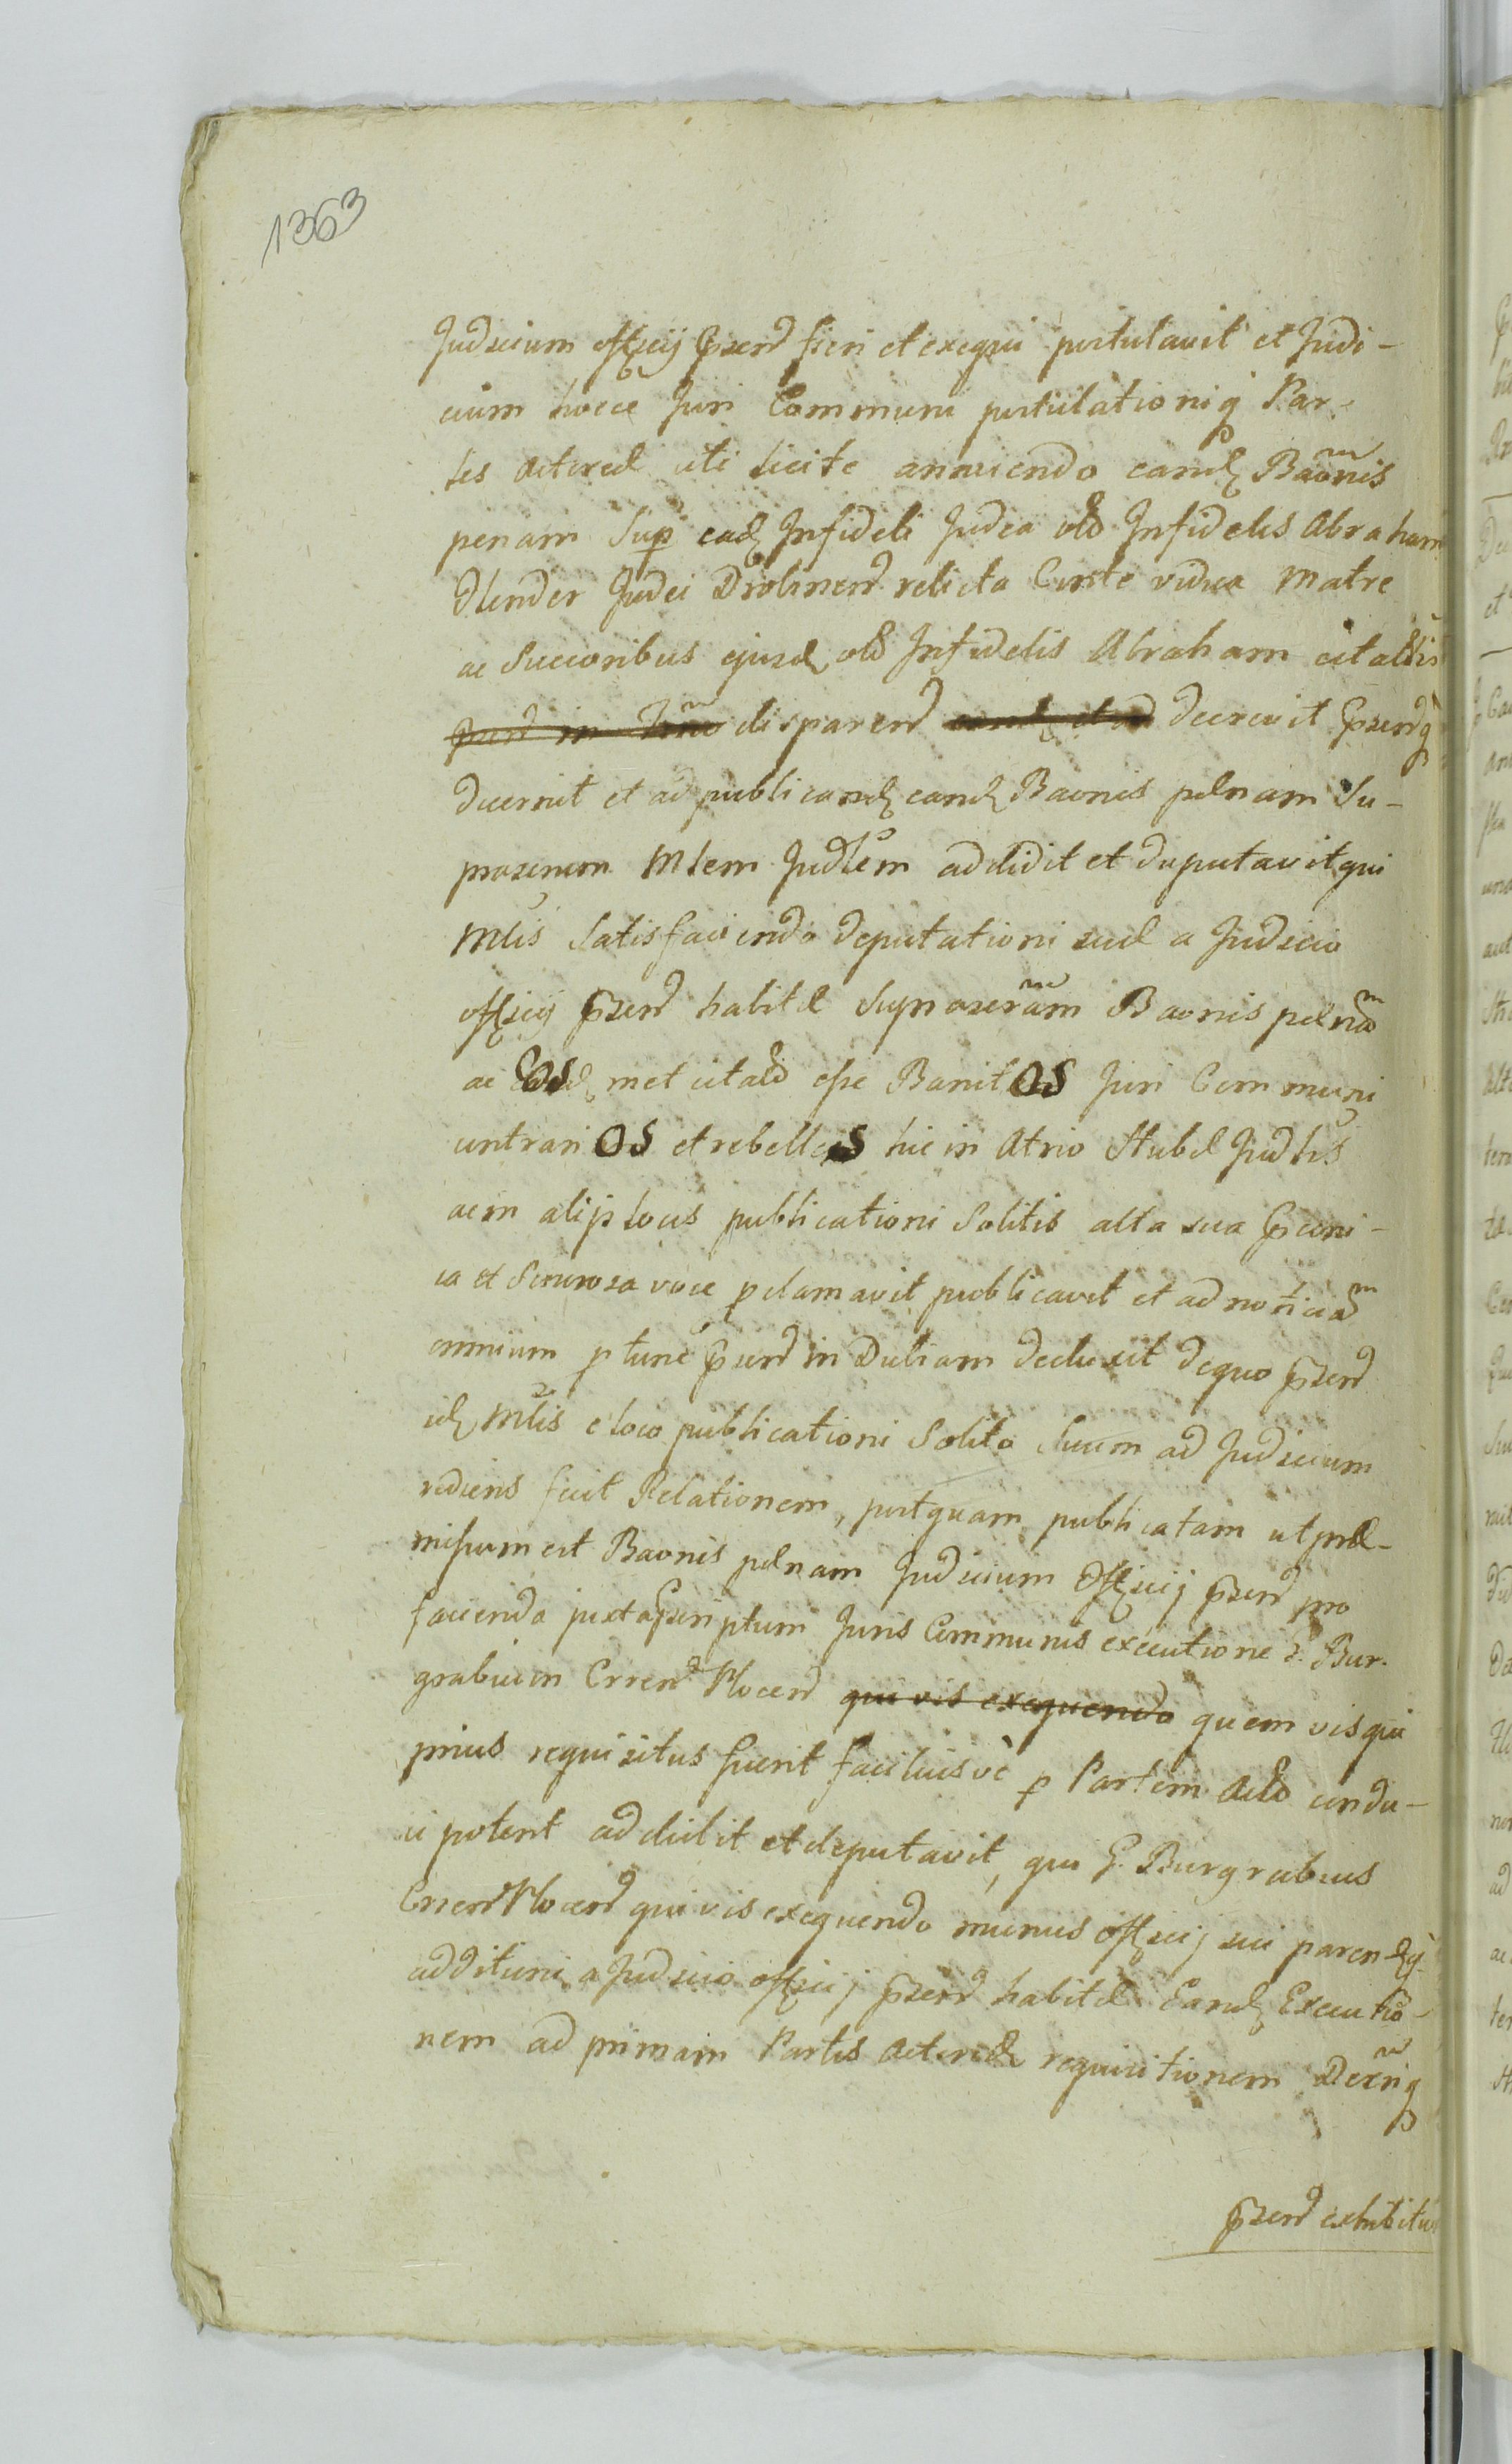 1363
Judicium officij pnsens fieri et exequi postulavit et Judi-
cium hocce Juri Communi postulationiq Par-
tis Actoreæ uti licite annuendo eand Banõnis
penam Sup eadē Infideli Judea olim Infidelis Abraham
Judei relicta Consorte vidua Matre
ac Succoribus ejusd olim Infidelis Abraham citatis
disparen decrevit pnsentiq
decernit et ad publicand eand Baonis pænam Su-
prascriptum Mlem Judlem addidit et deputavit qui
Mlis Satisfaciendo deputationi suæ a Judicio
officij pnsen habitæ Suprascriptam Baonis pænam
ac Eosd met citatos esse BanitOS Juri Communi
contrariOS et rebelleS hic in Atrio Stubæ Judlis
ac in alijs locis publicationi Solitis alta sua pconi-
ca et Sonorosa voce pclamavit publicavit et ad noticiam
omnium ptunc psen in deduxit de quo pnsen
idē Mlis e loco publicationi Solito Suum ad Judicium
rediens fecit Relationem, postquam publicatam ut præ-
missum est Baonis pænam Judicium Officij pnsen pro
facienda juxta pscriptum Juris Communis executione G. Bur-
grabium Crren Plocen qui vis exequendo quem vis qui
prius requisitus fuerit faciliusve p Partem Actō condu-
ci poterit addidit et deputavit, qui G. Burgrabius
Crren Plocen qui vis exequendo munus officij sui paren Eiq
additioni a Judicio officij pnsen habitæ Eand Executio-
nem ad primam Partis Actoreæ requisitionem
pnsen exhibitu